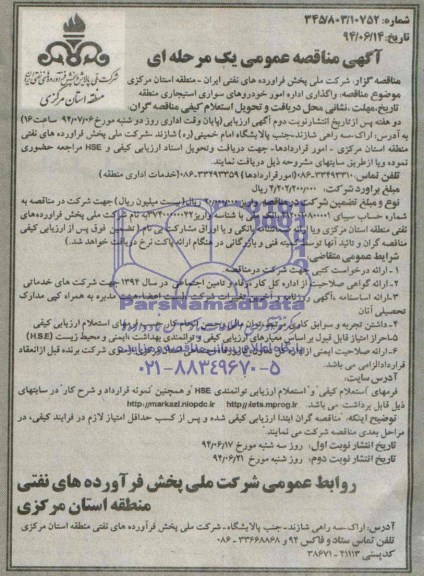 شماره: ۳۴۵/۸۰۳/۱۰۷۵۲
تاریخ: ۹۴/۰۶/۱۴
آگهی مناقصه عمومی یک مرحله ای
شرکت ملی پخش فرآورده های نفتی ایران
منطقه استان مرکزی
مناقصه گزار: شرکت ملی پخش فراورده های نفتی ایران - منطقه استان مرکزی
موضوع مناقصه: واگذاری اداره امور خودروهای سواری استیجاری منطقه
تاریخ، مهلت، نشانی محل دریافت و تحویل استعلام کیفی مناقصه گران:
دو هفته پس از تاریخ انتشار نوبت دوم آگهی ارزیابی (پایان وقت اداری روز دو شنبه مورخ ۹۴/۰۷/۰۶ ساعت ۱۶)
به آدرس: اراک-سه راهی شازند-جنب پالایشگاه امام خمینی (ره) شازند-شرکت ملی پخش فراورده های نفتی
منطقه استان مرکزی - امور قراردادها- جهت دریافت وتحویل اسناد ارزیابی کیفی و HSE مراجعه حضوری
نموده ویا از طریق سایتهای مشروحه ذیل دریافت نمایند.
تلفن تماس: ۳۳۴۹۳۳۱۰-۰۸۶ (امورقراردادها) ۳۳۴۹۳۳۵۹-۰۸۶ (خدمات اداری منطقه)
مبلغ برآورد شرکت: ۲/۲۰۲/۲۰۰/۰۰۰ ریال
نوع و مبلغ تضمین شرکت در مناقصه: واریز ۲۰/۰۰۰/۰۰۰ ریال (بیست میلیون ریال) جهت شرکت در مناقصه به
شماره حساب سیبای بانک ملی با شناسه واریز به نام شرکت ملی پخش فراورده‌های
نفتی منطقه استان مرکزی ویا ارائه ضمانتنامه بانکی و یا اوراق مشارکت بی نام (تضمین فوق پس از ارزیابی کیفی
مناقصه گران و تائید آنها توسط کمیته فنی و بازرگانی در هنگام ارائه پاکت نرخ دریافت خواهد شد.)
شرایط عمومی متقاضی:
۱-ارائه درخواست کتبی جهت شرکت در مناقصه
۲-ارائه گواهی صلاحیت از اداره کل کار، رفاه و تامین اجتماعی در سال ۱۳۹۴ جهت شرکت های خدماتی
۳-ارائه اساسنامه، آگهی روزنامه و آخرین تغییرات شرکت و لیست اعضا هیئت مدیره به همراه کپی مدارک
تحصیلی آنان
۴- داشتن تجربه و سوابق کاری مرتبط، توان مالی و حسن انجام کار استعلام ارزیابی کیفی
۵-احراز امتیاز قابل قبول بر اساس معیارهای ارزیابی کیفی و توانمندی بهداشت، ایمنی و محیط زیست (H.S.E)
۶-ارائه صلاحیت ایمنی از اداره کل تعاون، کار و رفاه اجتماعی برای شرکت برنده قبل از انعقاد
قرارداد الزامی می باشد.
آدرس سایت:
فرمهای "استعلام کیفی" و "استعلام ارزیابی توانمندی HSE" و همچنین "نمونه قرارداد و شرح کار" در سایتهای
ذیل قابل برداشت می باشد. http://iets.mprog.ir http://markazi.niopdc.ir
توضیح اینکه، "مناقصه گران ابتدا ارزیابی کیفی شده و پس از کسب حداقل امتیاز لازم در فرایند کیفی، در
مراحل بعدی مناقصه شرکت می نمایند."
تاریخ انتشار نوبت اول: روز سه شنبه مورخ ۹۴/۰۶/۱۷
تاریخ انتشار نوبت دوم: روز شنبه مورخ ۹۴/۰۶/۲۱
روابط عمومی شرکت ملی پخش فرآورده های نفتی
منطقه استان مرکزی
آدرس: اراک-سه راهی شازند-جنب پالایشگاه-شرکت ملی پخش فرآورده های نفتی منطقه استان مرکزی
تلفن تماس ستاد و فاکس ۹۴ و ۳۳۶۶۸۸۶۸-۰۸۶
کدپستی ۲۱۱۱۳-۳۸۶۷۱
ParsNamadData
۰۲۱-۸۸۳۴۹۶۷۰-۵